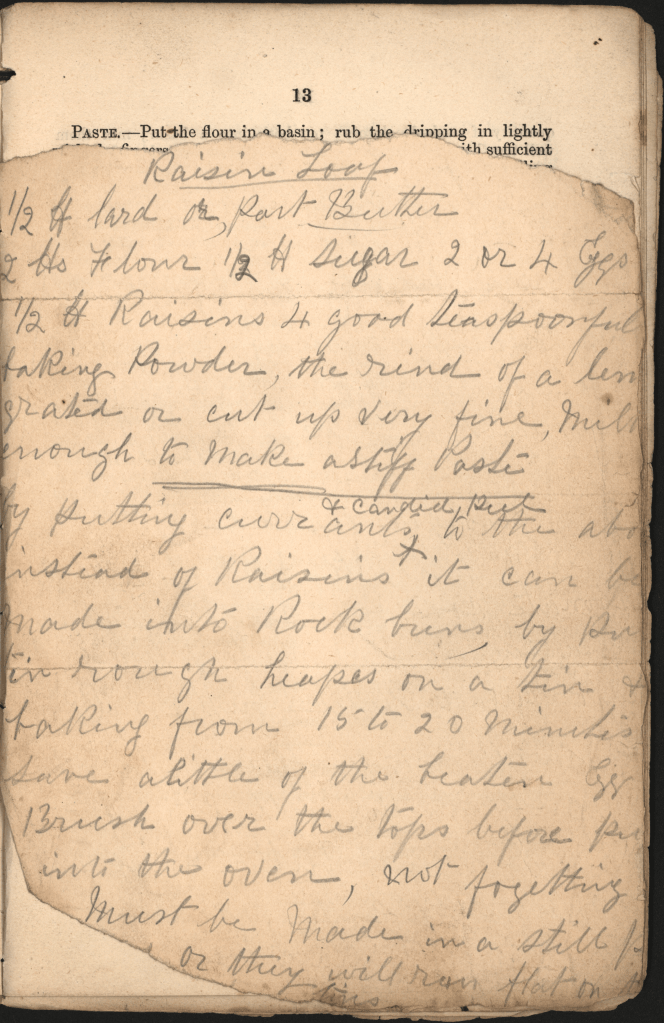 13
PASTE.—Put the flour in a basin; rub the dripping in lightly
fingers with sufficient
Raisin Loaf
1/2 lb lard or, part Butter
2 lbs Flour 1/2 lb Sugar 2 or 4 Eggs
1/2 lb Raisins 4 good teaspoonful
baking Powder, the rind of a lem
grated or cut up very fine, Milk
enough to Make a stiff Paste
& candid, Peel
by putting currants, to the abo
instead of Raisins it can be
made into Rock buns, by pu
tin rough heapes on a tin &
baking from 15 to 20 Minutes
save a little of the beaten Egg
Brush over the tops before pu
into the oven, not fogetting
Must be Made in a stiff p
or they will run flat on th
tins